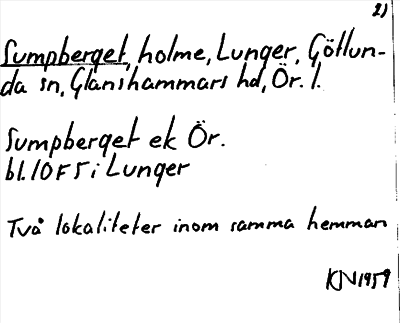 2)
Sumpberget, holme, Lunger, Götlun-
da sn, Glanshammars hd, Ör. l.
Sumpberget ek Ör.
bl. 10F5i Lunger
Två lokaliteter inom samma hemman
KN1959